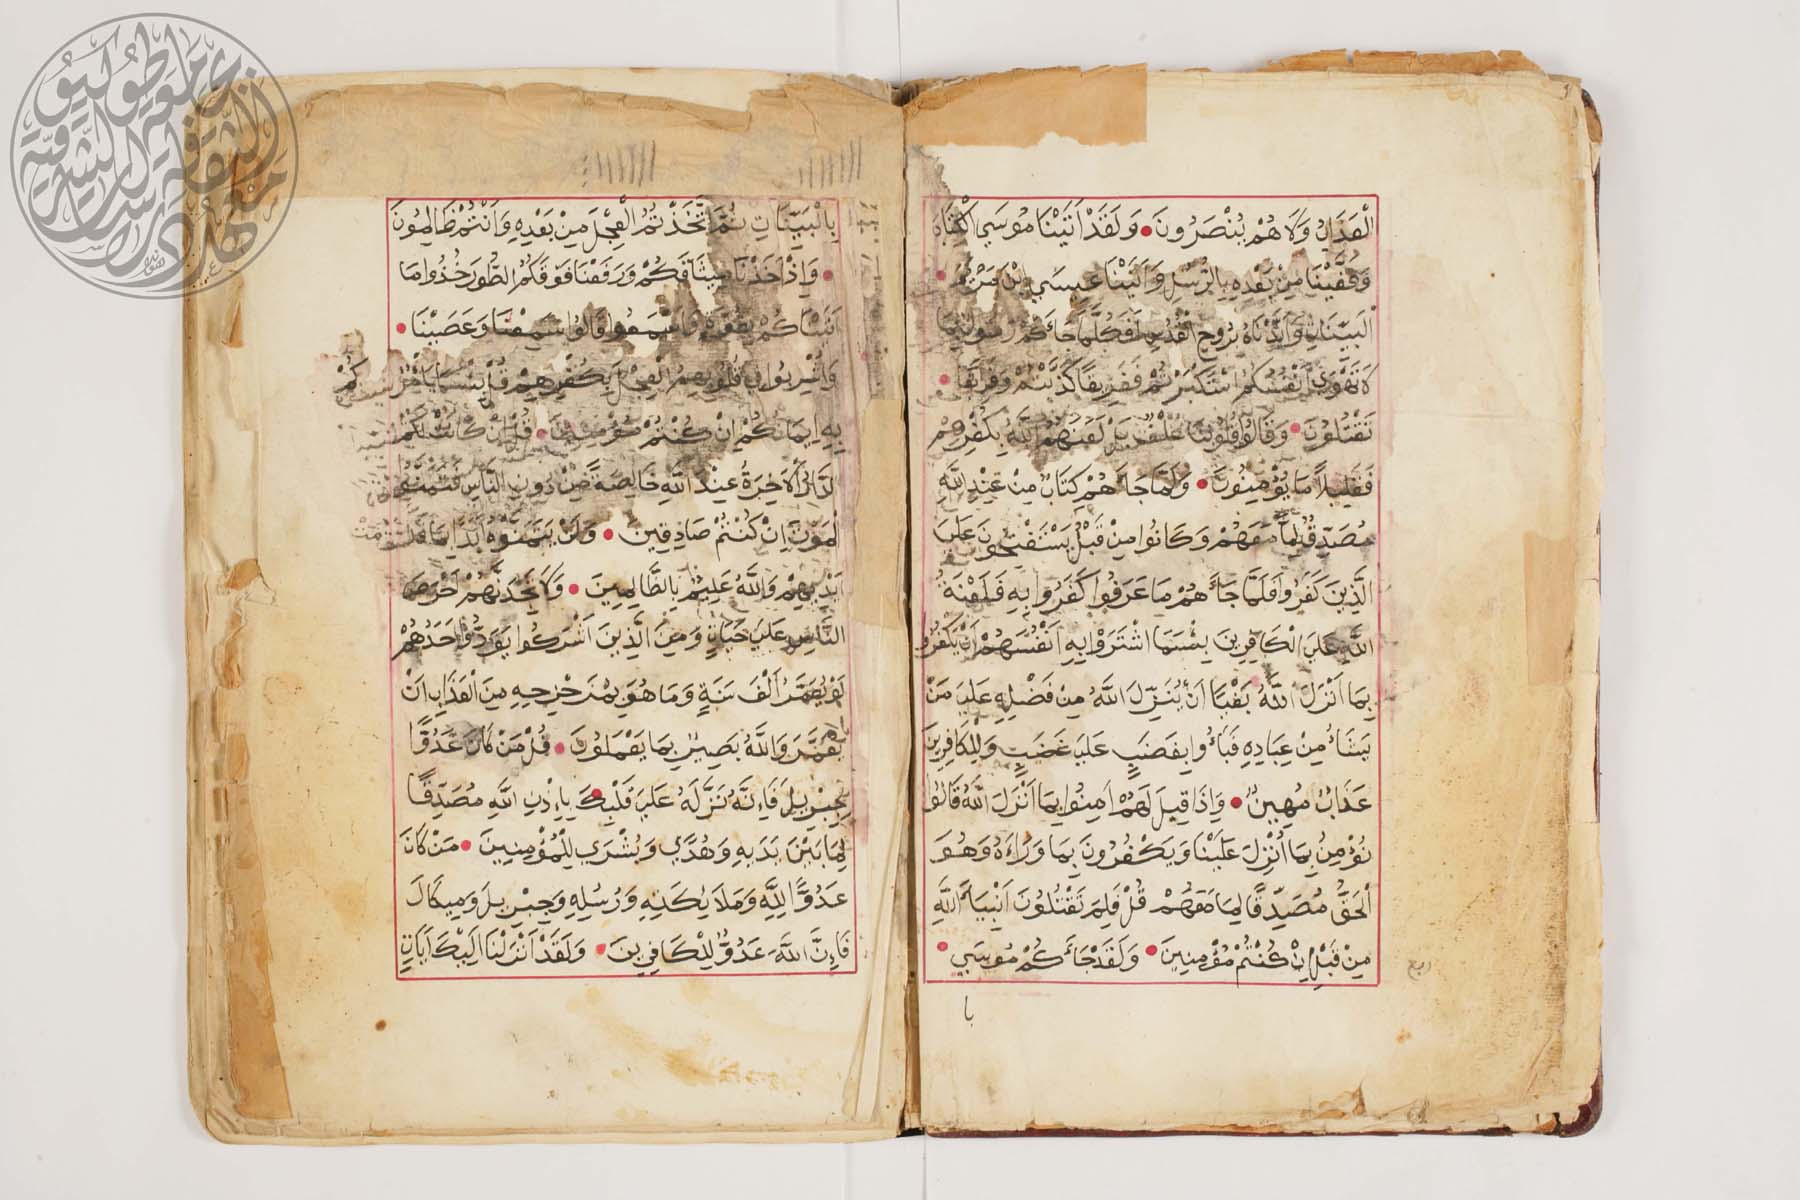 الْعَذَابُ وَلَا هُمْ يُنْصَرُونَ وَلَقَدْ اٰتَيْنَا مُوسَى الْكِتَابَ
وَقَفَّيْنَا مِنْ بَعْدِهِ بِالرُّسُلِ وَاٰتَيْنَا عِيسَى ابْنَ مَرْيَمَ
الْبَيِّنَاتِ وَاَيَّدْنَاهُ بِرُوحِ الْقُدُسِ اَفَكُلَّمَا جَاءَكُمْ رَسُولٌ بِمَا
لَا تَهْوٰى اَنْفُسُكُمُ اسْتَكْبَرْتُمْ فَفَرِيقًا كَذَّبْتُمْ وَفَرِيقًا
تَقْتُلُونَ وَقَالُوا قُلُوبُنَا غُلْفٌ بَلْ لَعَنَهُمُ اللّٰهُ بِكُفْرِهِمْ
فَقَلِيلًا مَا يُؤْمِنُونَ وَلَمَّا جَاءَهُمْ كِتَابٌ مِنْ عِنْدِ اللّٰهِ
مُصَدِّقٌ لِمَا مَعَهُمْ وَكَانُوا مِنْ قَبْلُ يَسْتَفْتِحُونَ عَلَى
الَّذِينَ كَفَرُوا فَلَمَّا جَاءَهُمْ مَا عَرَفُوا كَفَرُوا بِهِ فَلَعْنَةُ
اللّٰهِ عَلَى الْكَافِرِينَ بِئْسَمَا اشْتَرَوْا بِهِ اَنْفُسَهُمْ اَنْ يَكْفُرُوا
بِمَا اَنْزَلَ اللّٰهُ بَغْيًا اَنْ يُنَزِّلَ اللّٰهُ مِنْ فَضْلِهِ عَلَى مَنْ
يَشَاءُ مِنْ عِبَادِهِ فَبَاءُوا بِغَضَبٍ عَلَى غَضَبٍ وَلِلْكَافِرِينَ
عَذَابٌ مُهِينٌ وَاِذَا قِيلَ لَهُمْ اٰمِنُوا بِمَا اَنْزَلَ اللّٰهُ قَالُوا
نُؤْمِنُ بِمَا اُنْزِلَ عَلَيْنَا وَيَكْفُرُونَ بِمَا وَرَاءَهُ وَهُوَ
الْحَقُّ مُصَدِّقًا لِمَا مَعَهُمْ قُلْ فَلِمَ تَقْتُلُونَ اَنْبِيَاءَ اللّٰهِ
مِنْ قَبْلُ اِنْ كُنْتُمْ مُؤْمِنِينَ وَلَقَدْ جَاءَكُمْ مُوسَى
ربع
با
بِالْبَيِّنَاتِ ثُمَّ اتَّخَذْتُمُ الْعِجْلَ مِنْ بَعْدِهِ وَاَنْتُمْ ظَالِمُونَ
وَاِذْ اَخَذْنَا مِيثَاقَكُمْ وَرَفَعْنَا فَوْقَكُمُ الطُّورَ خُذُوا مَا
اٰتَيْنَاكُمْ بِقُوَّةٍ وَاسْمَعُوا قَالُوا سَمِعْنَا وَعَصَيْنَا
وَاُشْرِبُوا فِي قُلُوبِهِمُ الْعِجْلَ بِكُفْرِهِمْ قُلْ بِئْسَمَا يَأْمُرُكُمْ
بِهِ اِيمَانُكُمْ اِنْ كُنْتُمْ مُؤْمِنِينَ قُلْ اِنْ كَانَتْ لَكُمُ
الدَّارُ الْاٰخِرَةُ عِنْدَ اللّٰهِ خَالِصَةً مِنْ دُونِ النَّاسِ فَتَمَنَّوُا
الْمَوْتَ اِنْ كُنْتُمْ صَادِقِينَ وَلَنْ يَتَمَنَّوْهُ اَبَدًا بِمَا قَدَّمَتْ
اَيْدِيهِمْ وَاللّٰهُ عَلِيمٌ بِالظَّالِمِينَ وَلَتَجِدَنَّهُمْ اَحْرَصَ
النَّاسِ عَلَى حَيَاةٍ وَمِنَ الَّذِينَ اَشْرَكُوا يَوَدُّ اَحَدُهُمْ
لَوْ يُعَمَّرُ اَلْفَ سَنَةٍ وَمَا هُوَ بِمُزَحْزِحِهِ مِنَ الْعَذَابِ اَنْ
يُعَمَّرَ وَاللّٰهُ بَصِيرٌ بِمَا يَعْمَلُونَ قُلْ مَنْ كَانَ عَدُوًّا
لِجِبْرِيلَ فَاِنَّهُ نَزَّلَهُ عَلَى قَلْبِكَ بِاِذْنِ اللّٰهِ مُصَدِّقًا
لِمَا بَيْنَ يَدَيْهِ وَهُدًى وَبُشْرَى لِلْمُؤْمِنِينَ مَنْ كَانَ
عَدُوًّا لِلّٰهِ وَمَلَائِكَتِهِ وَرُسُلِهِ وَجِبْرِيلَ وَمِيكَالَ
فَاِنَّ اللّٰهَ عَدُوٌّ لِلْكَافِرِينَ وَلَقَدْ اَنْزَلْنَا اِلَيْكَ اٰيَاتٍ